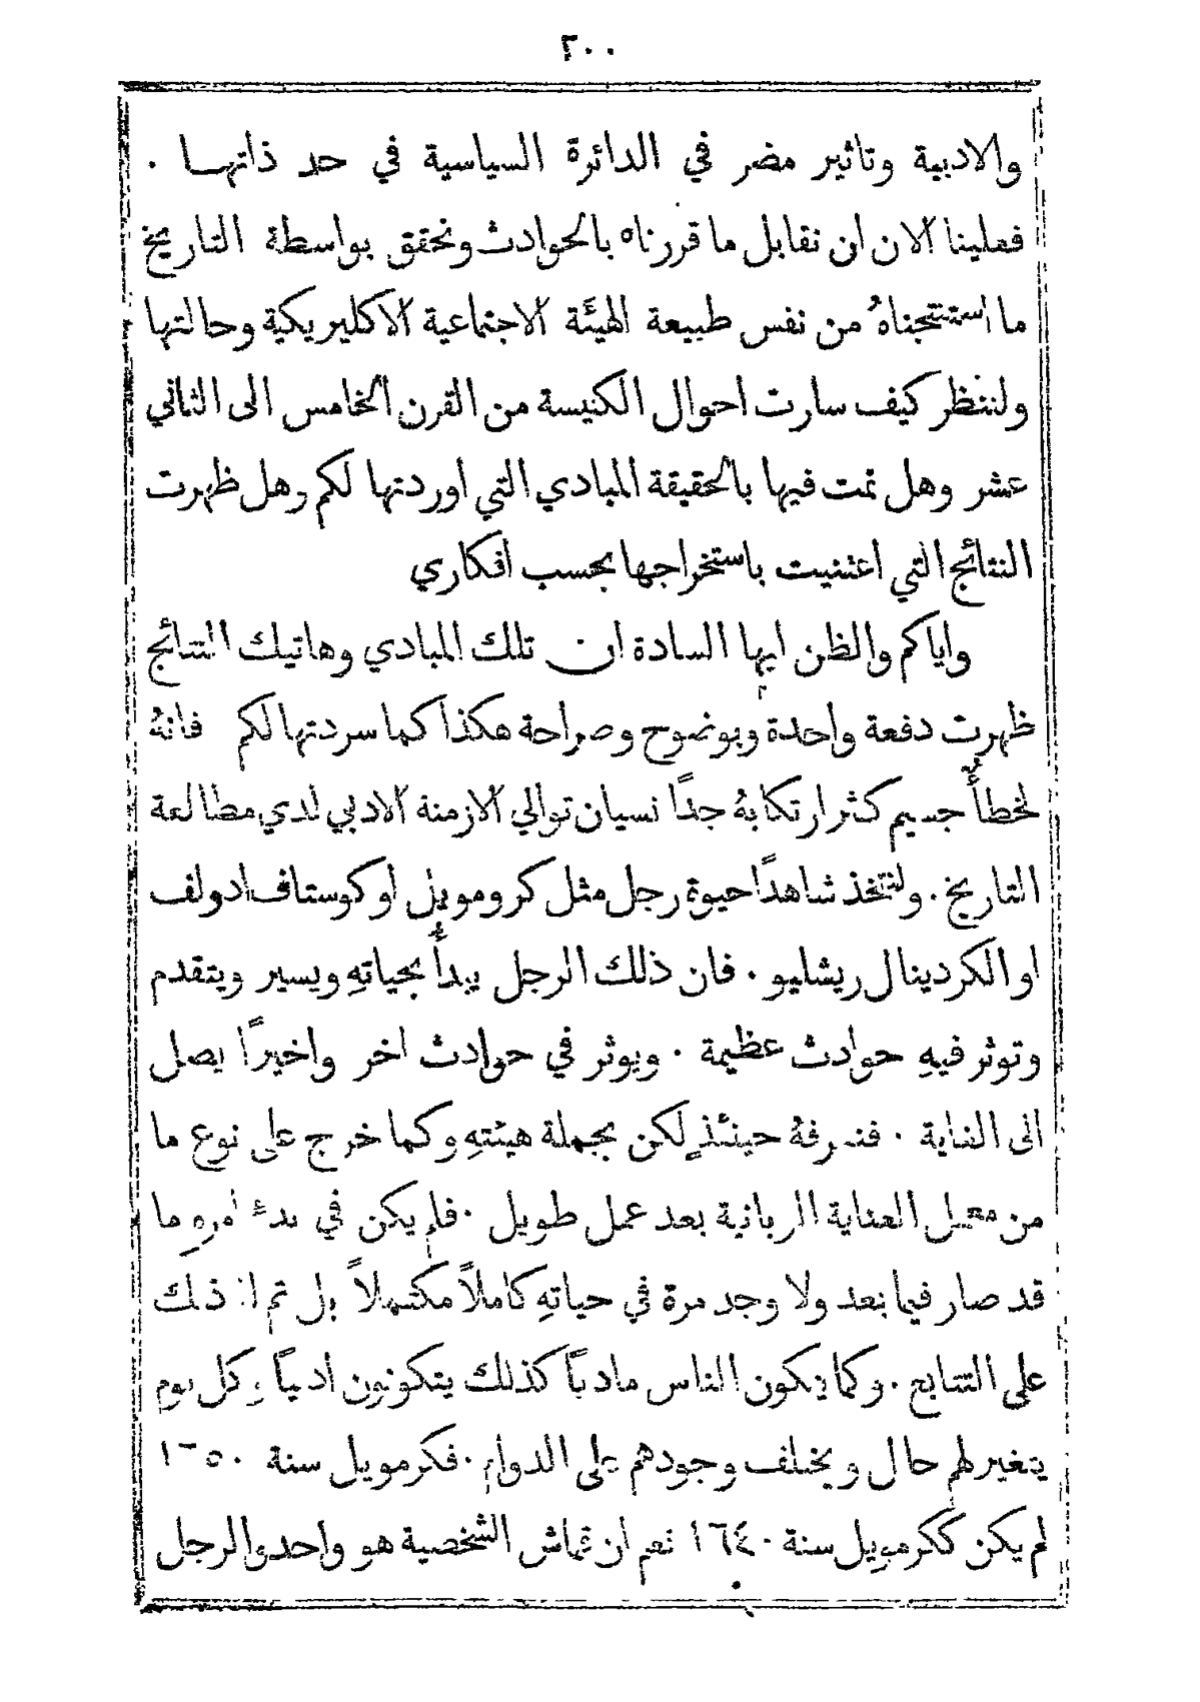 ٢٠٠
والادبية وتاثير مضر في الدائرة السياسية في حد ذاتها .
فعلينا الان ان نقابل ما قررناه بالحوادث ونحقق بواسطة التاريخ
ما استنتجناهُ من نفس طبيعة الهيئة الاجتماعية الاكليريكية وحالتها
ولننظر كيف سارت احوال الكنيسة من القرن الخامس الى الثاني
عشر وهل تمت فيها بالحقيقة المبادي التي اوردتها لكم وهل ظهرت
النتائج التي اعتنيت باستخراجها بحسب افكاري
واياكم والظن ايها السادة ان تلك المبادي وهاتيك النتائج
ظهرت دفعة واحدة وبوضوح وصراحة هكذا كما سردتها لكم فانهُ
لخطأٌ جسيم كثر ارتكابهُ جدًا نسيان توالي الازمنة الادبي لدي مطالعة
التاريخ . ولنتخذ شاهدًا حيوة رجل مثل كرومويل او كوستاف ادولف
او الكردينال ريشليو . فان ذلك الرجل يبدأُ بحياتهِ ويسير ويتقدم
وتوثر فيهِ حوادث عظيمة . ويوثر في حوادث اخر واخيرًا يصل
الى الغاية . فنعرفهُ حينئذٍ لكن بجملة هيئتهِ وكما خرج على نوع ما
من معمل العناية الربانية بعد عمل طويل . فلم يكن في بدء امره ما
قد صار فيما بعد ولا وجد مرة في حياتهِ كاملاً مكتملاً بل تم لهُ ذلك
على التتابع . وكما يكون الناس ماديًا كذلك يتكونون ادبيًا وكل يوم
يتغير لهم حال ويختلف وجودهم على الدوام . فكرمويل سنة ١٦٥٠
لم يكن ككرمويل سنة ١٦٤٠ نعم ان قماش الشخصية هو واحد والرجل